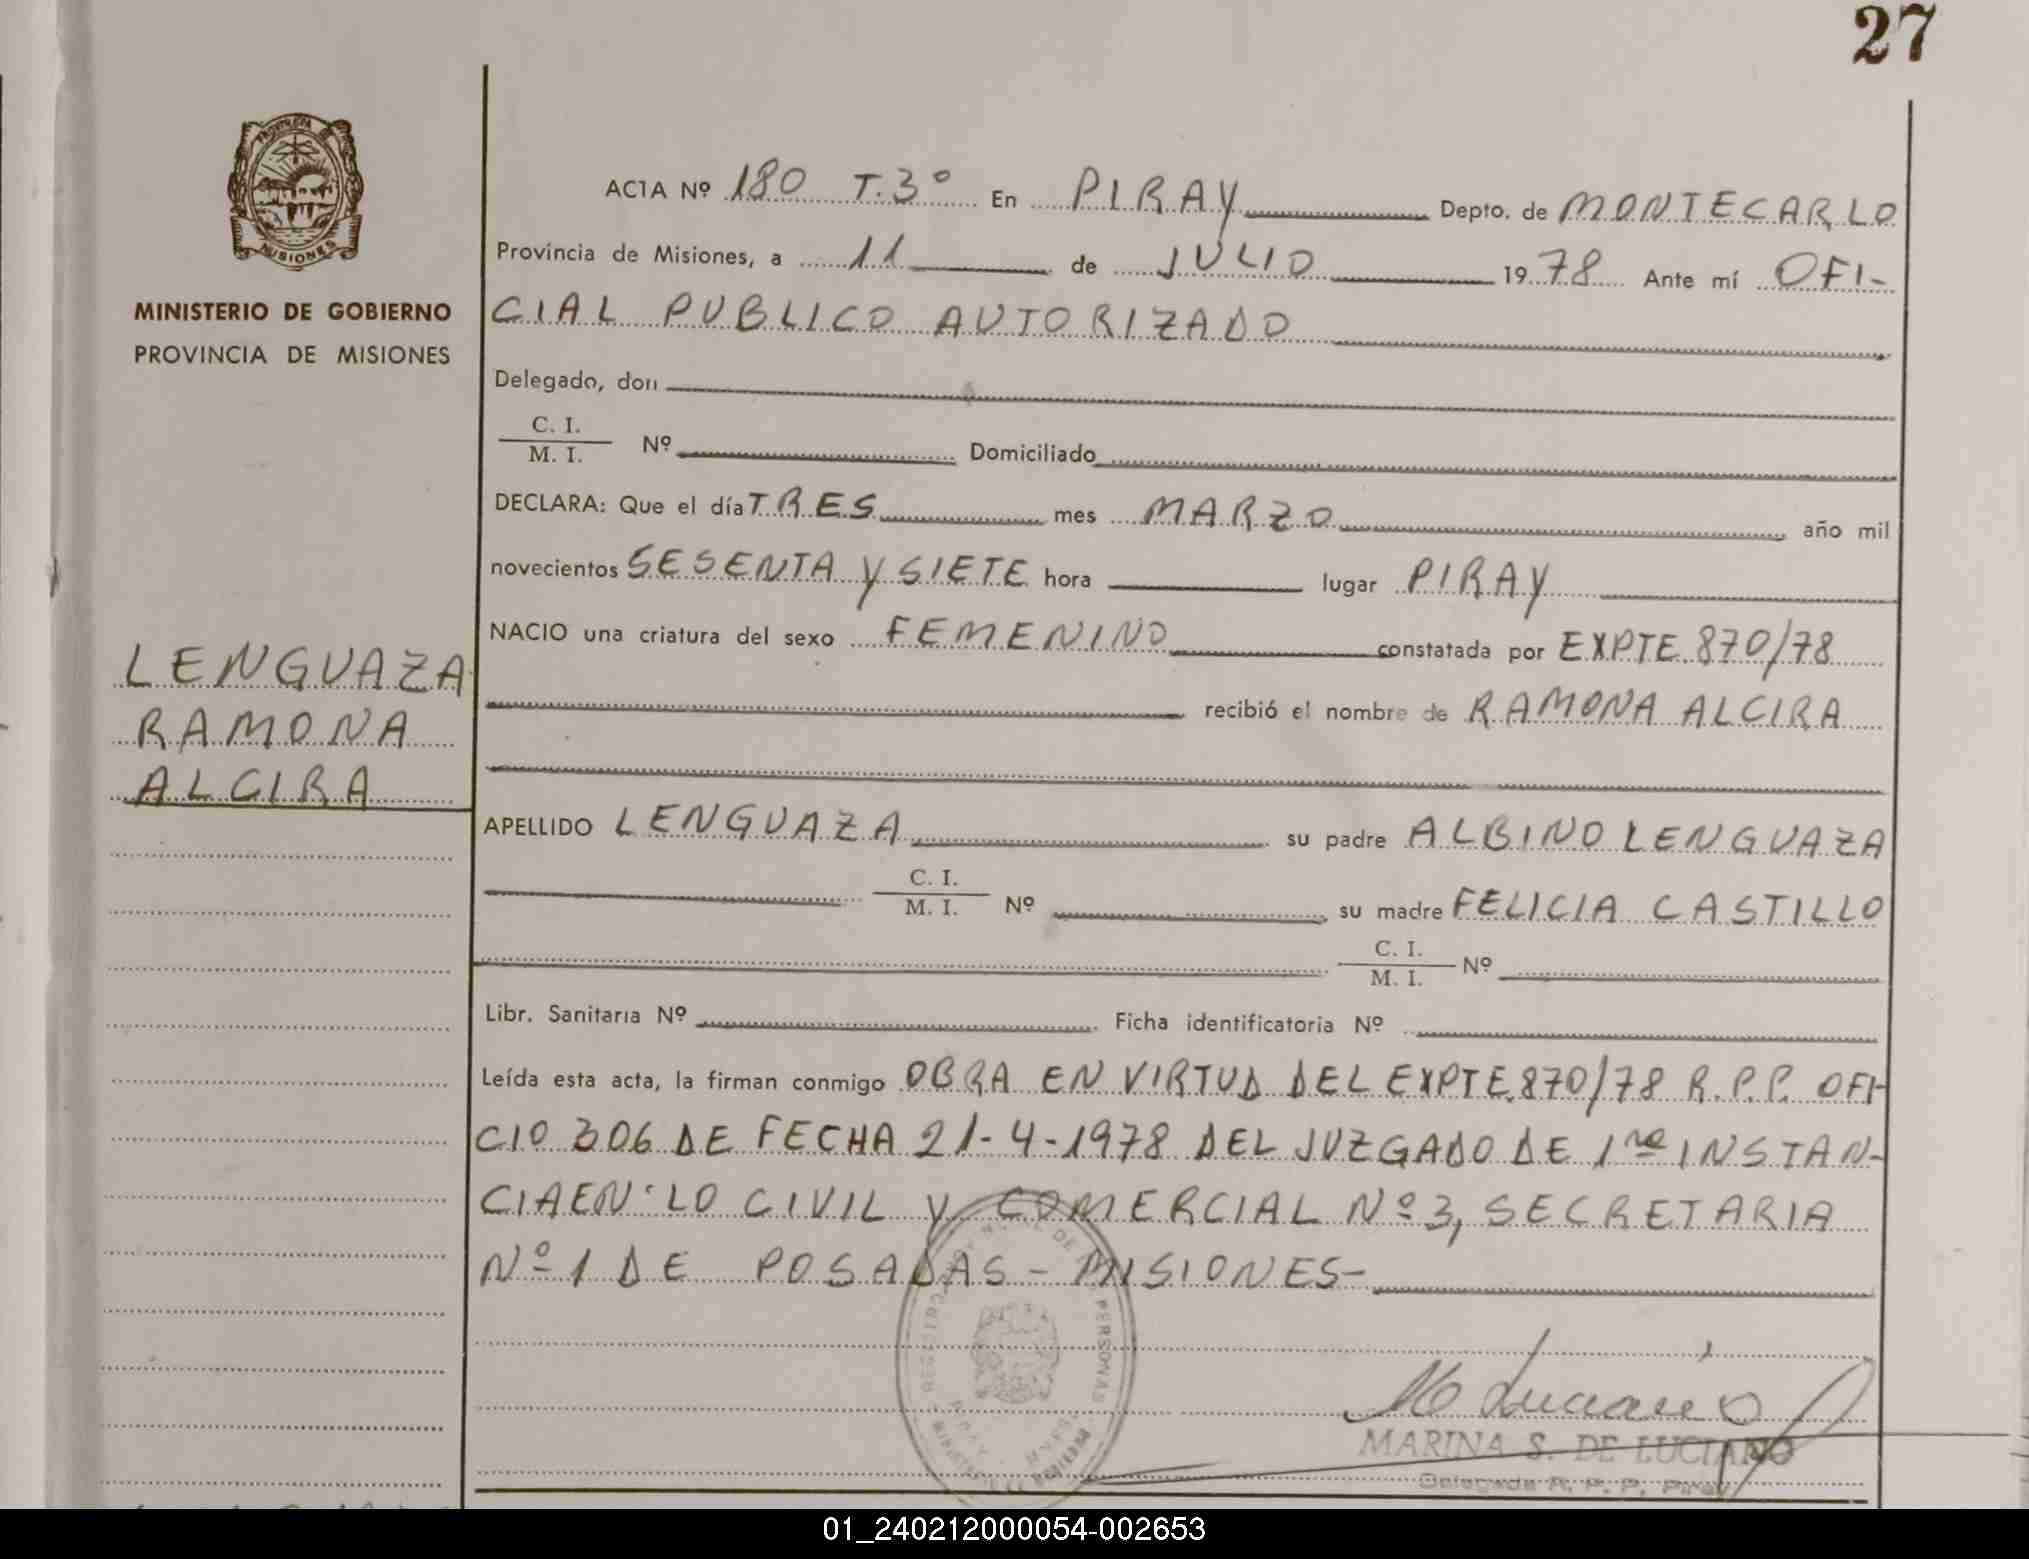 27
PROVINCIA DE
MISIONES
MINISTERIO DE GOBIERNO
PROVINCIA DE MISIONES
LENGUAZA
RAMONA
ALCIRA
ACTA Nº 180 T. 3º En PIRAY Depto. de MONTECARLO
Provincia de Misiones, a 11 de JULIO 1978 Ante mí OFI-
CIAL PUBLICO AUTORIZADO
Delegado, don
C. I.
M. I. Nº Domiciliado
DECLARA: Que el día TRES mes MARZO año mil
novecientos SESENTA Y SIETE hora lugar PIRAY
NACIO una criatura del sexo FEMENINO constatada por EXPTE 870/78
recibió el nombre de RAMONA ALCIRA
APELLIDO LENGUAZA su padre ALBINO LENGUAZA
C. I.
M. I. Nº su madre FELICIA CASTILLO
C. I.
M. I. Nº
Libr. Sanitaria Nº Ficha identificatoria Nº
Leída esta acta, la firman conmigo OBRA EN VIRTUD DEL EXPTE.870/78 R.P.P. OFI-
CIO 306 DE FECHA 21-4-1978 DEL JUZGADO DE 1ra INSTAN-
CIA EN LO CIVIL Y COMERCIAL Nº 3, SECRETARIA
Nº 1 DE POSADAS - MISIONES-
DE PERSONAS
M Luciano
MARINA S. DE LUCIANO
Delegada R. P. P. Piray
01_240212000054-002653